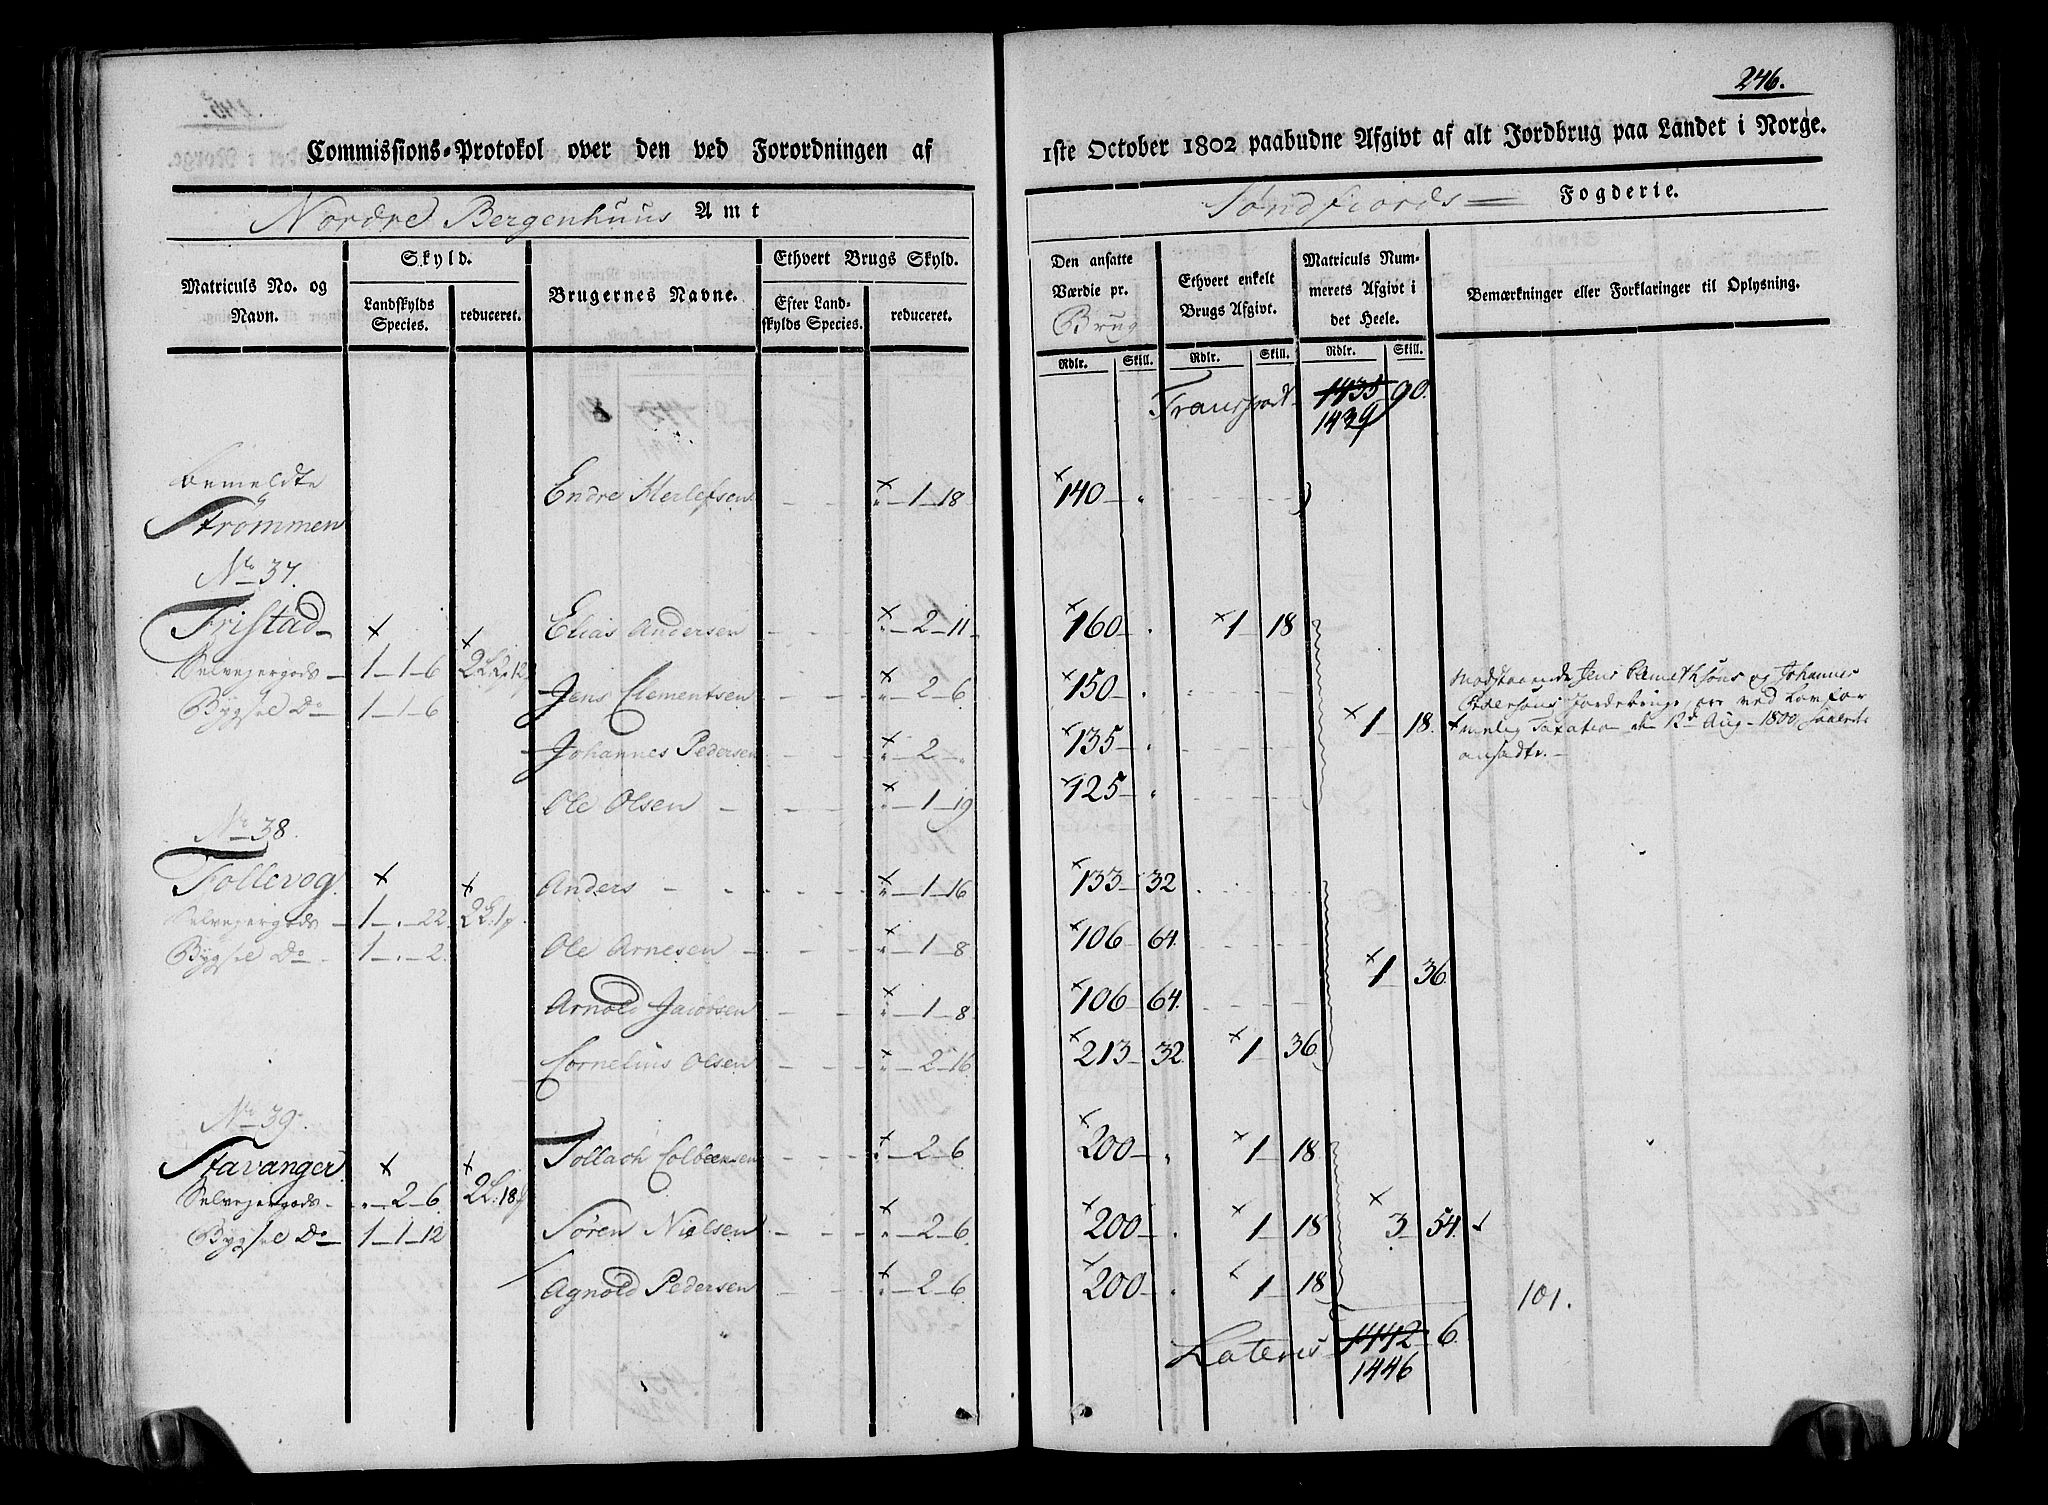 246.
Commissions-Protokol over den ved Forordningen af
1ste October 1802 paabudne Afgivt af alt Jordbrug paa Landet i Norge.
Nordre Bergenhuus Amt
Søndfiords Fogderie.
Matriculs No. og Navn.
Skyld.
Landskylds Species.
reduceret.
Brugernes Navne.
Ethvert Brugs Skyld.
Efter Landskylds Species.
reduceret.
Den ansatte Værdie pr. Brug
Rdlr. Skill.
Ethvert enkelt Brugs Afgivt.
Rdlr. Skill.
Matriculs Nummerets Afgivt i det Heele.
Rdlr. Skill.
Bemærkninger eller Forklaringer til Oplysning.
Transport 1435 90.
1439
bemeldte
Strømmen
Endre Herlefsen - - - " - 1 - 18. 140 - "
No 37.
Tristad
Elias Andersen - - - " - 2 - 11 160 - . 1 - 18
Selvejergods - 1 - 1 - 6
Bygsel Do - 1 - 1 - 6
Jens Clementsen - - - " - 2 - 6. 150 - "
Johannes Pedersen " - 2 - " 135 - "
1 - 18.
Ole Olsen - - - - " - 1 - 19 125 - "
Modstaaende Jens Clemethsøns og Johannes
Pedersøns Jordebruge, ere ved Lovfor
menlig Taxation den 12te Aug - 1800 saaledes
ansadte. -
No 38.
Follevog.
Anders - - - - - " - 1 - 16 133 - 32
Selvejergods - 1 - . - 22.
Bygsel Do - 1 - . - 2.
Ole Arnesen - - - - " - 1 - 8 106 - 64.
Arnold Jacobsen - - " - 1 - 8. 106 - 64.
1 36
Cornelius Olsen - - - " - 2 - 16. 213 - 32 1 - 36
No 39.
Stavanger
Tollach Colbensen - - - " - 2 - 6 200 - " 1 - 18
Selvejergods - . - 2 - 6.
Bygsel Do - 1 - 1 - 12
Søren Nielsen - - - " - 2 - 6. 200 - . 1 - 18
3 - 54.
Agnold Pedersen - - - " - 2 - 6. 200 - . 1 - 18
101.
Lateris 1442 - 6.
1446